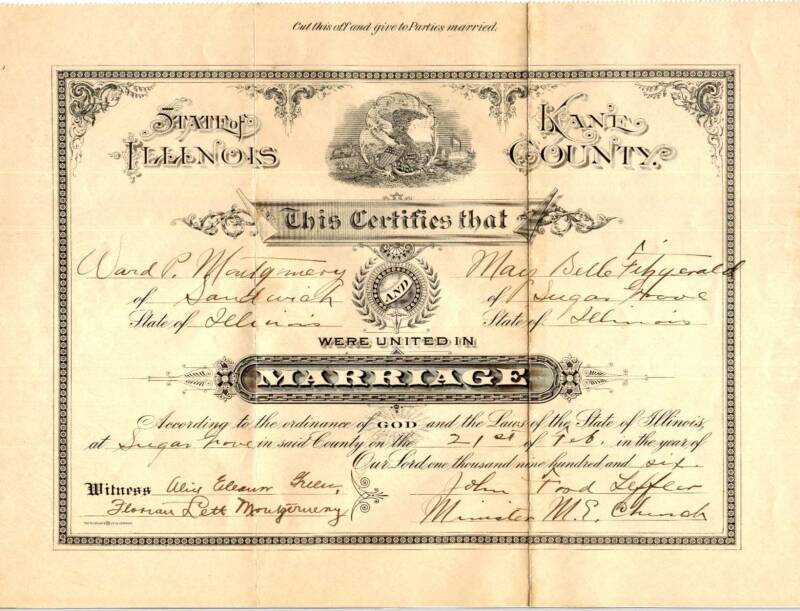 Cut this off and give to Parties married.
STATE OF ILLINOIS
KANE COUNTY.
This Certifies that
Ward P. Montgomery AND May Belle Fitzgerald
of Sandwich of Sugar Grove
State of Illinois State of Illinois
WERE UNITED IN
MARRIAGE
According to the ordinance of GOD and the Laws of the State of Illinois,
at Sugar Grove in said County on the 21st of Feb. in the year of
Our Lord one thousand nine hundred and six.
Witness Alice Eleanor John Food Leffler
Florian Lett Montgomery Minister M.E. Church